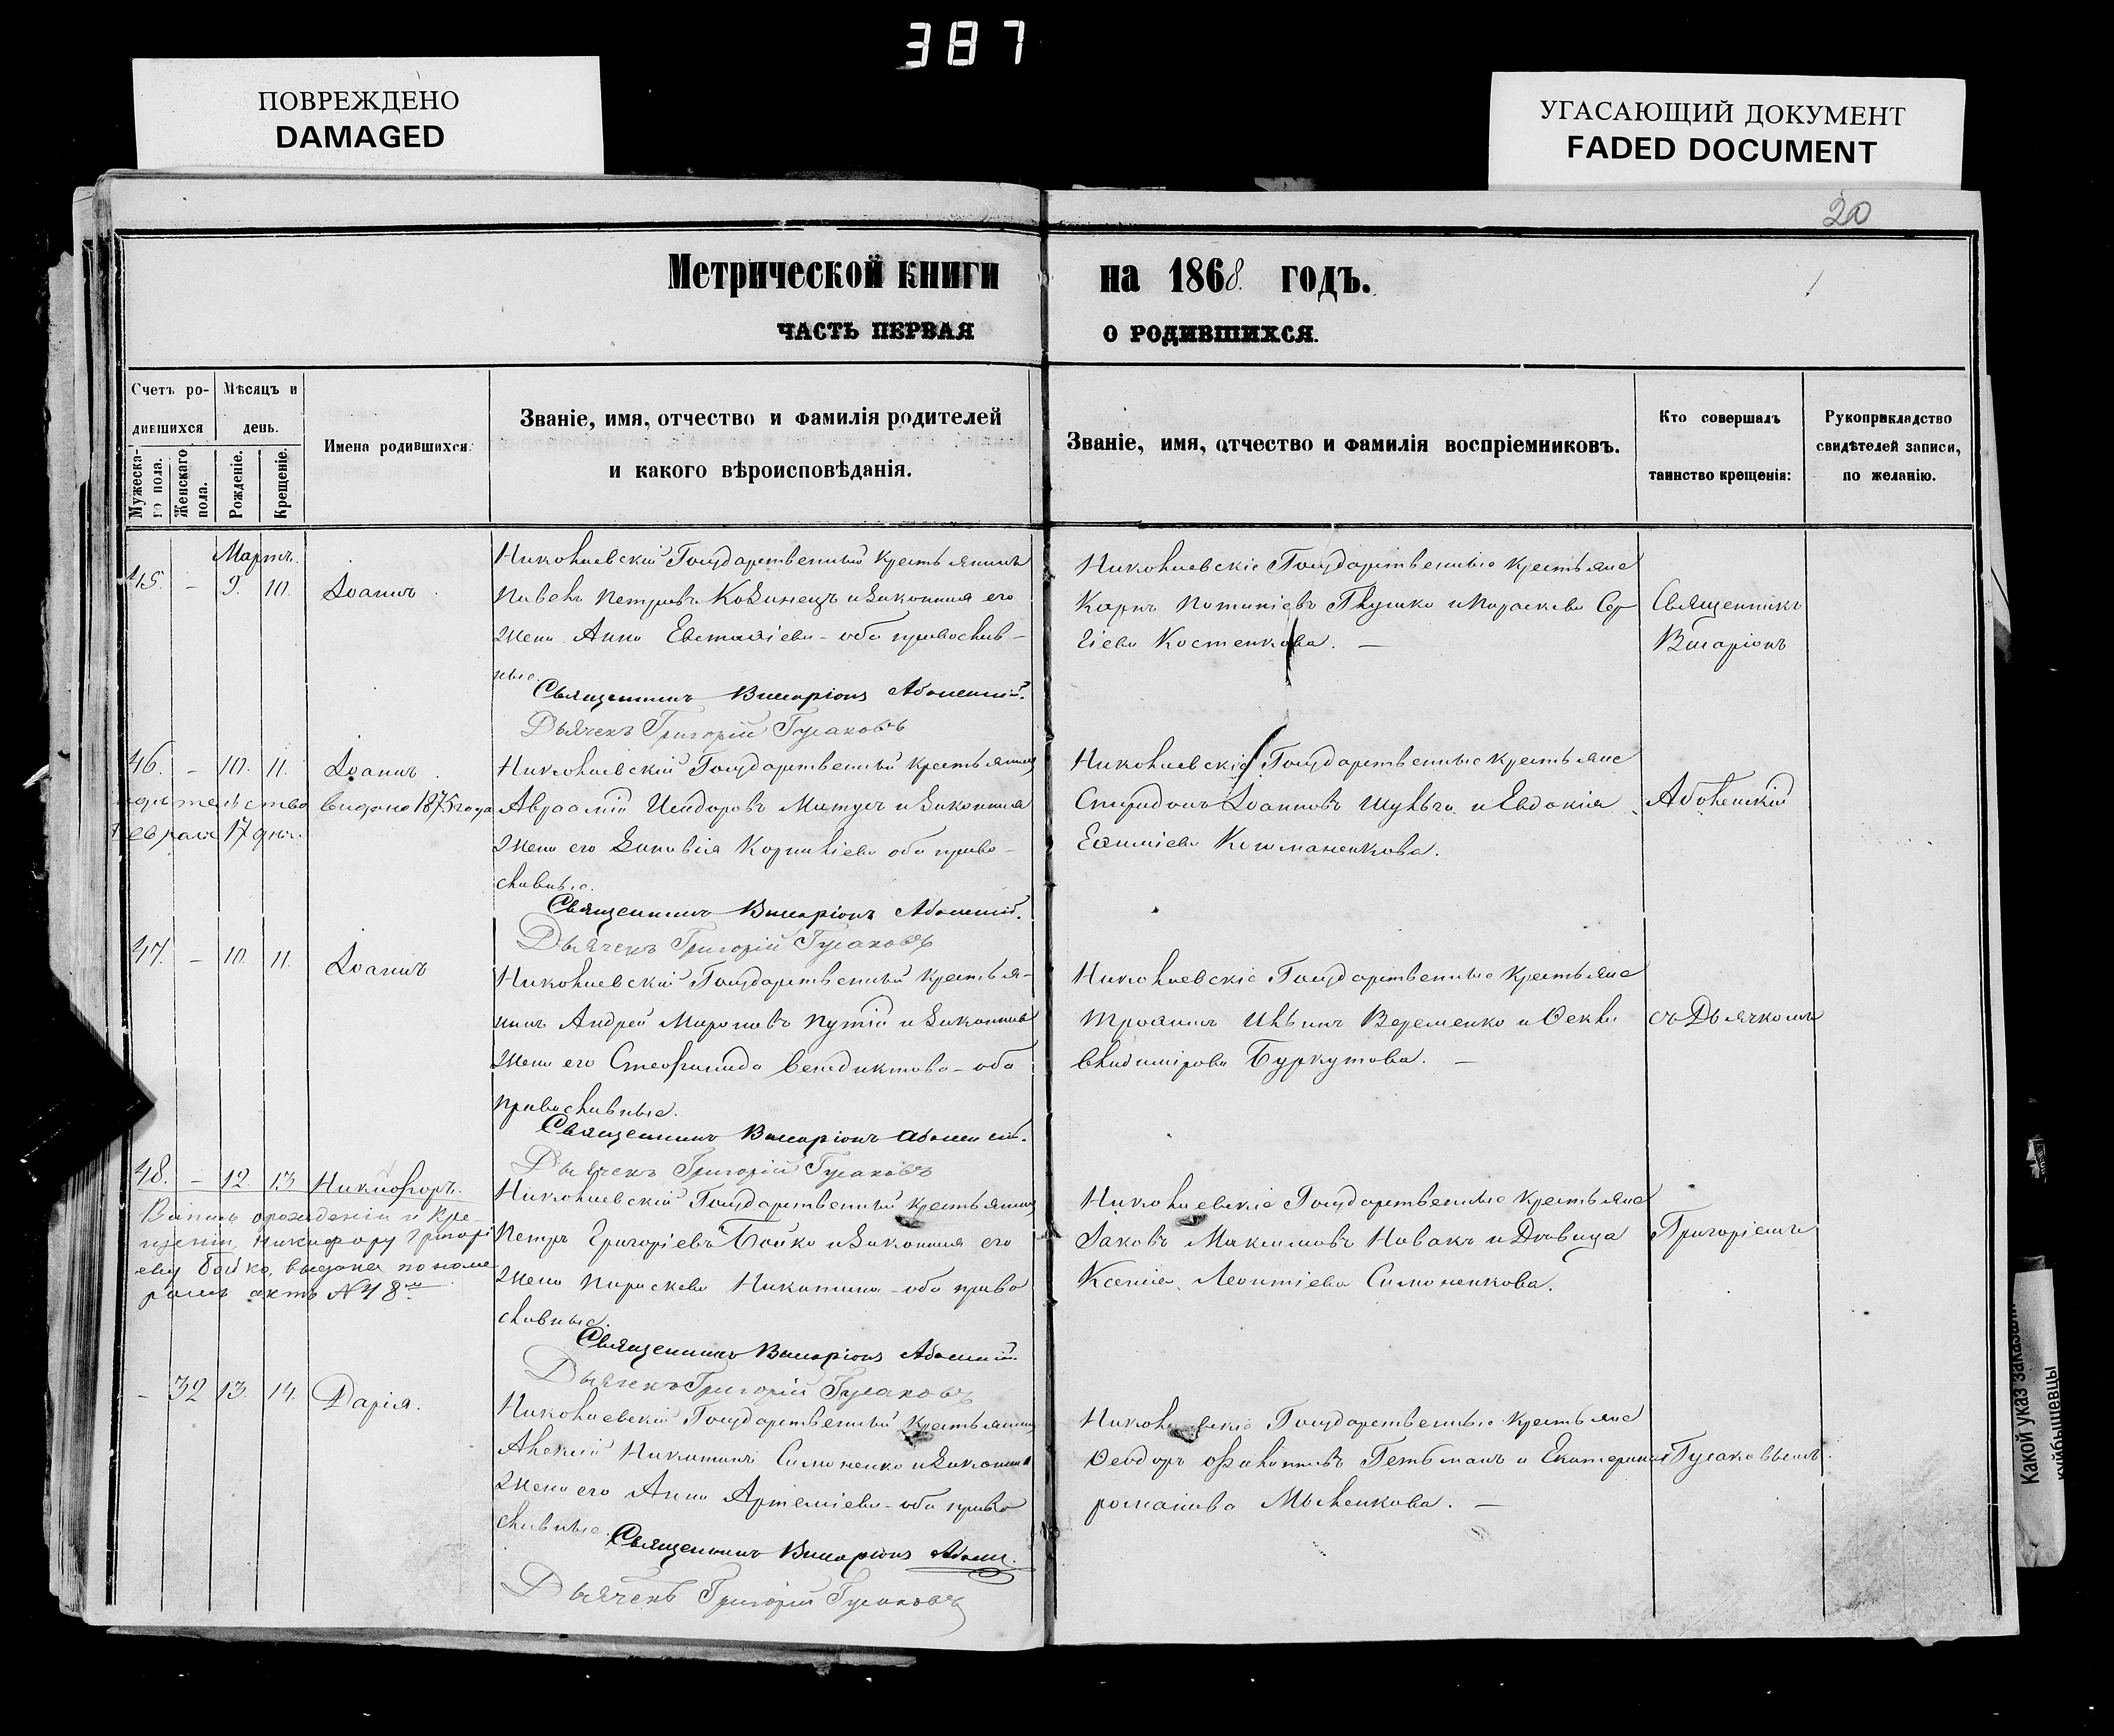 387
ПОВРЕЖДЕНО
DAMAGED
УГАСАЮЩИЙ ДОКУМЕНТ
FADED DOCUMENT
20
Метрической книги на 1868. годъ.
ЧАСТЬ ПЕРВАЯ О РОДИВШИХСЯ.
Счетъ ро-
дившихся
Мужеска-
го пола.
Женскаго
пола.
Мѣсяцъ и
день.
Рожденіе.
Крещеніе.
Имена родившихся.
Званіе, имя, отчество и фамилія родителей
и какого вѣроисповѣданія.
Званіе, имя, отчество и фамилія воспріемниковъ.
Кто совершалъ
таинство крещенія:
Рукоприкладство
свидѣтелей записи,
по желанію.
Мартъ.
45. - 9. 10. Іоаннъ.
Николаевскій Государственный крестьянинъ
Павелъ Петровъ и законная его
жена Анна Евстафіева - оба православ-
ные.
Священникъ Виссаріонъ
Дьячекъ Григорій Гусаковъ
Николаевскіе Государственные крестьяне
Карпъ Глушко и Параскева Сер-
гіева Костенкова. —
Священникъ
Виссаріонъ
46. - 10. 11. Іоаннъ.
выдано 1875 года
Февраля 17 дня.
Николаевскій Государственный крестьянинъ
Авраамій Исидоровъ и законная
жена его Зиновія Корниліева оба право-
славные.
Священникъ Виссаріонъ
Дьячекъ Григорій Гусаковъ
Николаевскіе Государственные крестьяне
Спиридонъ Іоанновъ Шульга и Евдокія
Евфиміева
47. - 10. 11. Іоаннъ
Николаевскій Государственный крестья-
нинъ Андрей Мироновъ и законная
жена его Венедиктова - оба
православные.
Священникъ Виссаріонъ
Дьячекъ Григорій Гусаковъ
Николаевскіе Государственные крестьяне
Трофимъ Ильинъ Веременко и Ѳекла
Владимірова Буркутова. —
съ Дьячкомъ
48. - 12. 13 Никифоръ.
о рожденіи и кре-
щеніи Никифору Григорі
еву Бойко, выдана
актъ №48
Николаевскій Государственный крестьянинъ
Петръ Григоріевъ Бойко и законная его
жена Параскева Никитина - оба право
славные.
Священникъ Виссаріонъ
Дьячекъ Григорій Гусаковъ
Николаевскіе Государственные крестьяне
Іаковъ Максимовъ Новакъ и Дѣвица
Ксенія Леонтіева Симоненкова.
Григоріемъ
- 32 13. 14. Дарія.
Николаевскій Государственный крестьянинъ
Алексій Никитинъ Симоненко и законная
жена его Анна Артеміева - оба право
славные.
Священникъ Виссаріонъ
Дьячекъ Григорій Гусаковъ
Николаевскіе Государственные крестьяне
Ѳеодоръ Филипповъ Гетьманъ и Екатерина
Романова —
Гусаковымъ.
Какой указ заказали
куйбышевцы